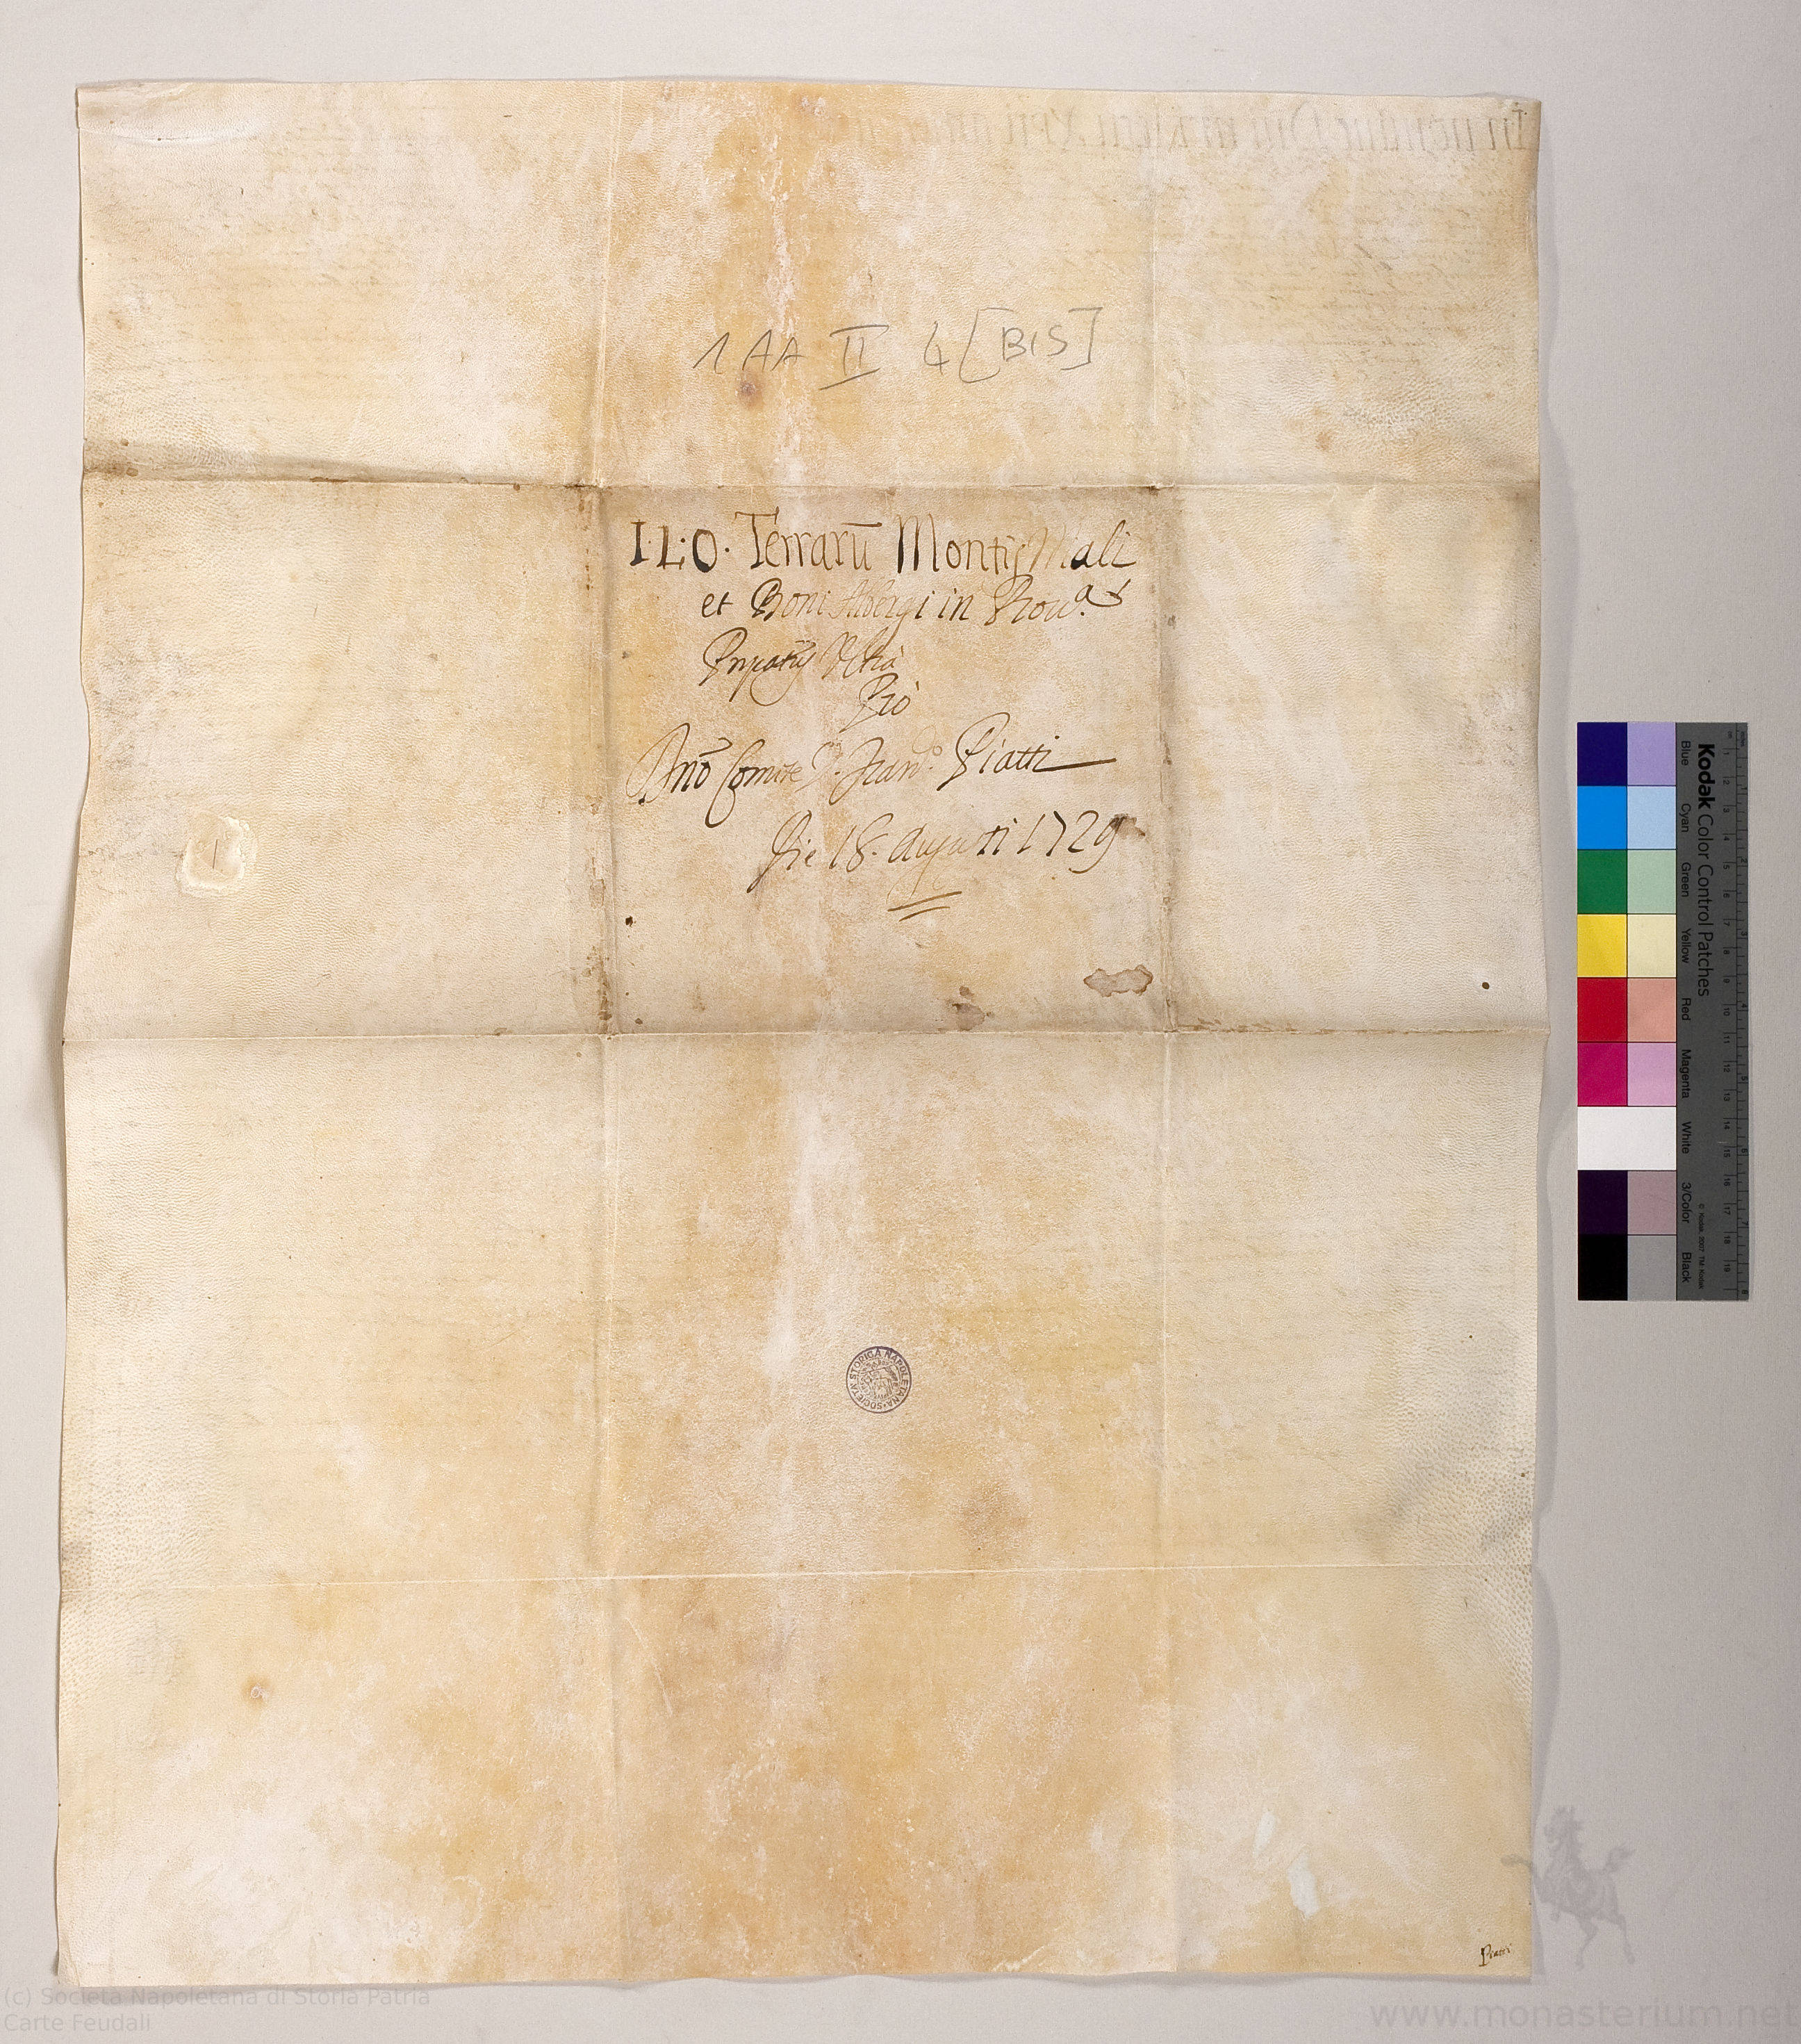 1 AA II 4 [BIS]
I·L·O. Terrarū Montis Mali
et Boni Albergi in Prou.ª
Ultrà
Prò
Dnō Comite D. Fran.do Piatti
Die 18. Augusti 1729
SOCIETÀ STORICA NAPOLETANA
Piatti
Kodak Color Control Patches
Blue Cyan Green Yellow Red Magenta White 3/Color Black
© Kodak, 2007 TM: Kodak
(c) Società Napoletana di Storia Patria
Carte Feudali
www.monasterium.net